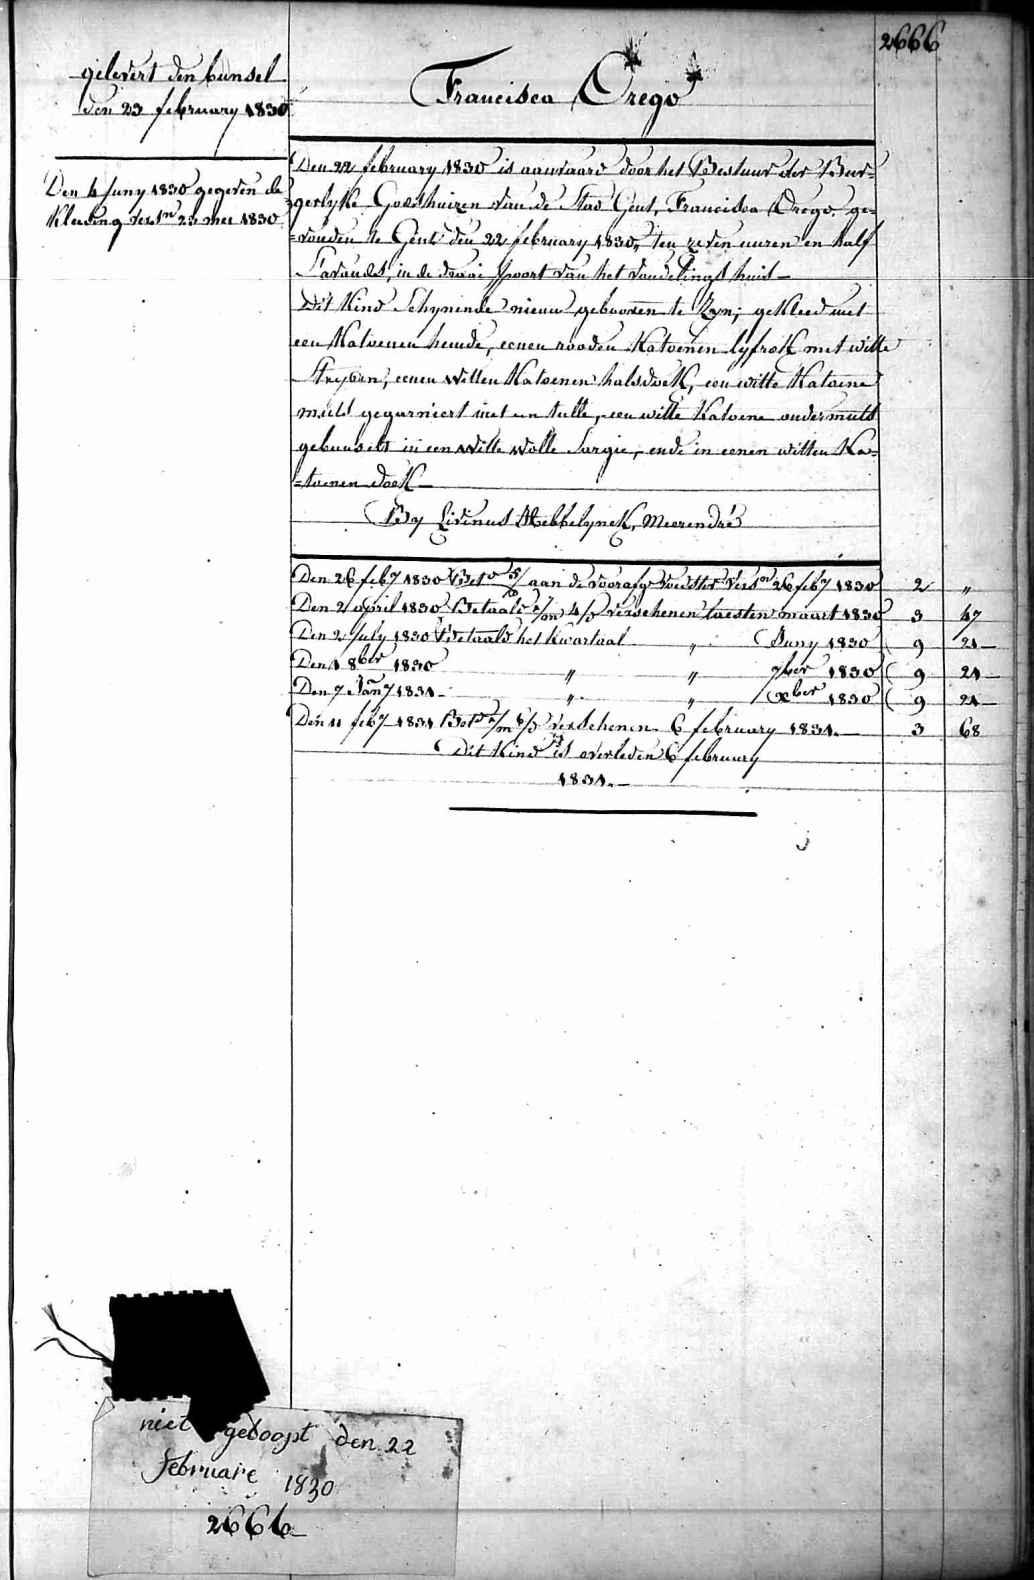 2666
gelevert den bunsel
den 23 february 1830
Den 4 Juny 1830 gegeven de
Kleeding versn 23 mei 1830
Francisca Orego
Den 22 february 1830 is aanvaard door het Bestuur der Bur=
gerlyke Godshuizen van de Stad Gent, Francisca Orego, ge=
=vonden te Gent den 22 february 1830, ten zeven uuren en half
s'avonds, in de draai poort van het vondelings huis—
Dit Kind schynende nieuw gebooren te Zyn, gekleed met
een Katoenen hemde, eenen rooden Katoenen lyfrok met witte
streypen, eenen witten Katoenen halsdoek, een witte Katoene
muts gegarniert met en tulle, een witte Katoene ondermuts
gebunselt in een witte wolle Sargie, ende in eenen witten Ka=
=toenen doek—
By Livinus Hebbelynck, Meerendré
Den 26 feby 1830 Bete 5/ aan de voorafg voedster versn 26 feby 1830 2 "
Den 2 april 1830 Betaald verschenen laesten maart 1830 3 47
Den 2 July 1830 Betaald het Kwartaal " Juny 1830 9 21—
Den 1 8ber 1830 " " 7ber 1830 9 21—
Den 7 Jany 1831 " " xber 1830 9 21—
Den 11 feby 1831 verschenen 6 february 1831.— 3 68
Dit Kind is overleden 6 february
1831.—
niet gedoopt den 22
februare 1830
2666